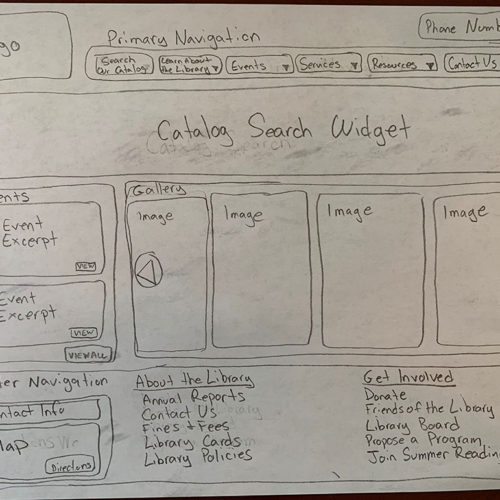 go
Primary Navigation
Phone Numb
Search
Our Catalog
Learn About
the Library
Events
Services
Resources
Contact Us
Catalog Search Widget
ents
Event
Excerpt
VIEW
Event
Excerpt
VIEW
VIEW ALL
Gallery
Image
Image
Image
Image
er Navigation
ontact Info
Map
Directions
About the Library
Annual Reports
Contact Us
Fines + Fees
Library Cards
Library Policies
Get Involved
Donate
Friends of the Library
Library Board
Propose a Program
Join Summer Reading